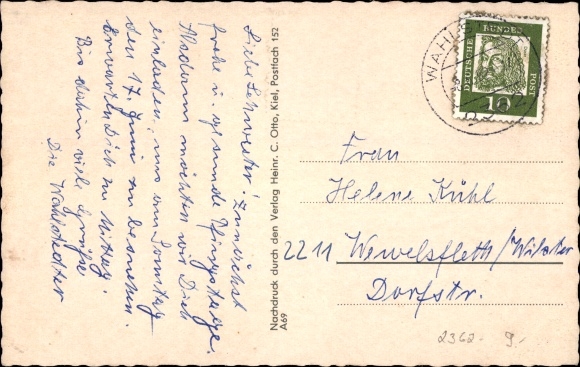 Liebe Schwester! Zunächst
frohe u. gesunde Pfingsttage.
Alsdann möchten wir Dich
einladen, uns am Sonntag
den 17. Juni zu besuchen.
Erwarten Dich zu Mittag.
Bis dahin viele Grüße
Die Wahlstedter
Nachdruck durch den Verlag Heinr. C. Otto, Kiel, Postfach 152
A69
WAHLST
DEUTSCHE BUNDES POST
10
Frau
Helene Kühl
2211 Wewelsfleth/Wilster
Dorfstr.
2362- 9.-